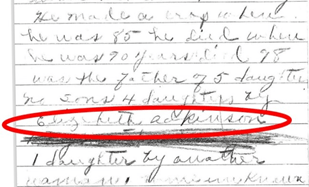 He made a crop when
he was 85 he died when
he was 90 years old 98
was the father of 5 daughters
no sons 4 daughters by
Elizabeth adkinson
1 daughter by another